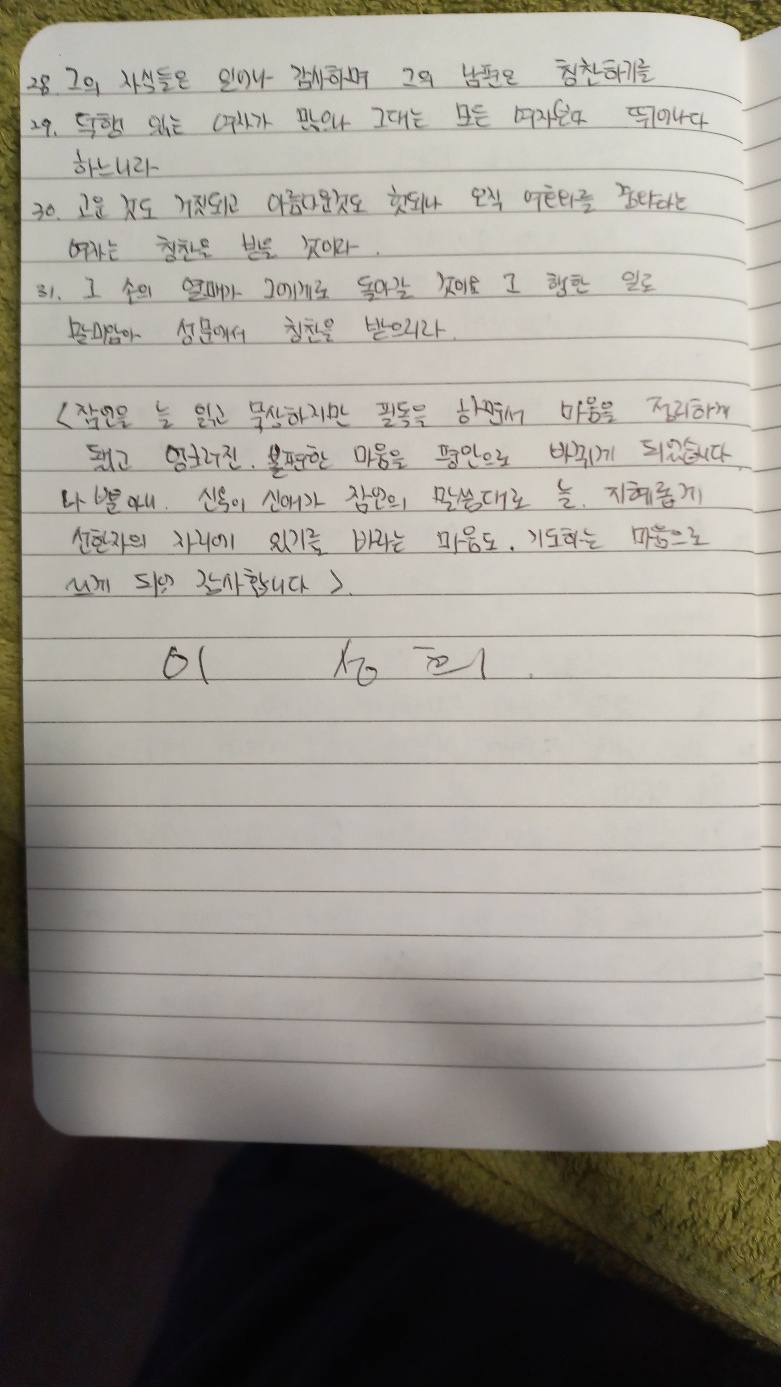 28. 그의 자식들은 일어나 감사하며 그의 남편은 칭찬하기를
29. 덕행 있는 여자가 많으나 그대는 모든 여자보다 뛰어나다
하느니라
30. 고운 것도 거짓되고 아름다운것도 헛되나 오직 여호와를 경외하는
여자는 칭찬을 받을 것이라.
31. 그 손의 열매가 그에게로 돌아갈 것이요 그 행한 일로
말미암아 성문에서 칭찬을 받으리라.
<잠언을 늘 읽고 묵상하지만 필독을 하면서 마음을 정리하게
됐고 엉크러진. 불편한 마음을 평안으로 바뀌게 되었습니다
나 뿐 아니. 신애가 잠언의 말씀대로 늘. 지혜롭게
선한자의 자리에 있기를 바라는 마음도. 기도하는 마음으로
쓰게 되어 감사합니다>.
이 성 희.